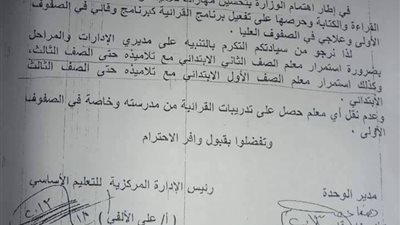 في إطار اهتمام الوزارة بتحسين مهارات
القراءة والكتابة وحرصها على تفعيل برنامج القرائية كبرنامج وقائي في الصفوف
الأولى وعلاجي في الصفوف العليا .
لذا نرجو من سيادتكم التكرم بالتنبيه على مديري الإدارات والمراحل
بضرورة استمرار معلم الصف الثاني الابتدائي مع تلاميذه حتى الصف الثالث،
وكذلك استمرار معلم الصف الأول الابتدائي مع تلاميذه حتى الصف الثالث
الابتدائي .
وعدم نقل أي معلم حصل على تدريبات القرائية من مدرسته وخاصة في الصفوف
الأولى .
وتفضلوا بقبول وافر الاحترام
مدير الوحدة
رئيس الإدارة المركزية للتعليم الأساسي
( أ / علي الألفي )